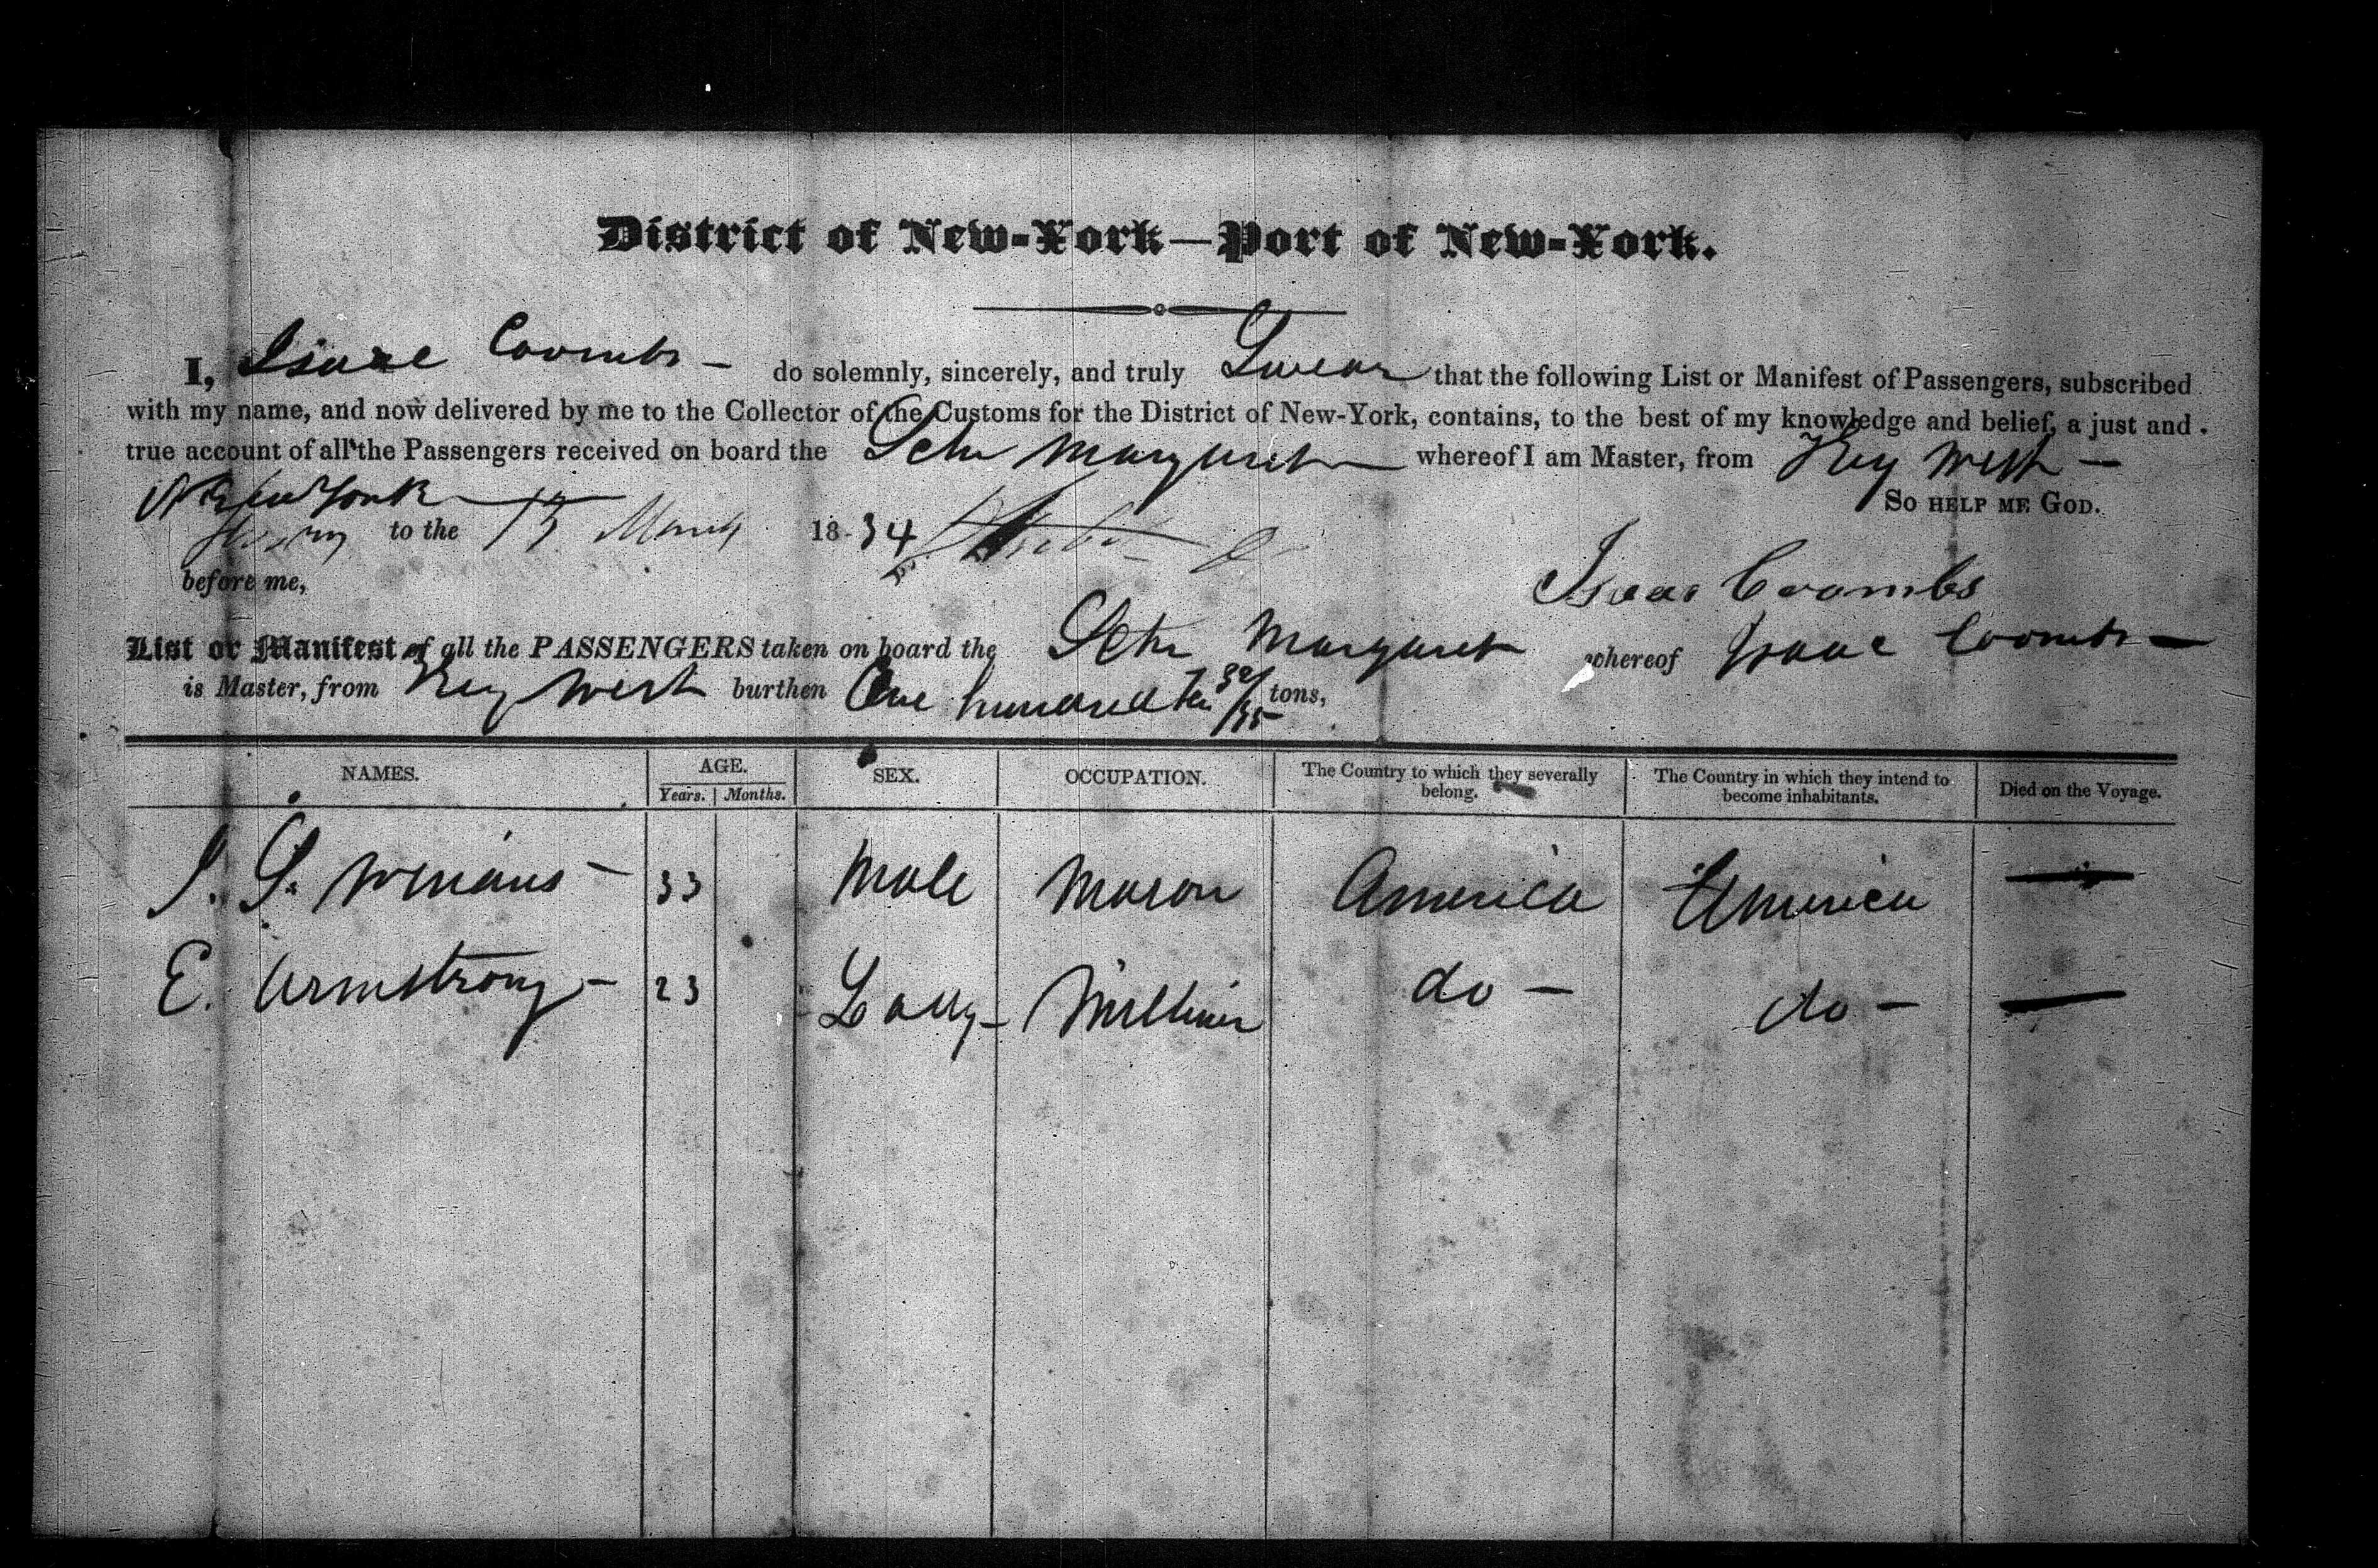 District of New-York—Port of New-York.
I, Isaac Coombs – do solemnly, sincerely, and truly Swear that the following List or Manifest of Passengers, subscribed
with my name, and now delivered by me to the Collector of the Customs for the District of New-York, contains, to the best of my knowledge and belief, a just and
true account of all the Passengers received on board the Schr Margaret whereof I am Master, from Key West –
New York
So help me God.
to the 13 March 1834
before me,
Isaac Coombs
List or Manifest of all the PASSENGERS taken on board the Schr Margaret whereof Isaac Coombs –
is Master, from Key West burthen One hundred Ten 32/95 tons,
NAMES. AGE. SEX. OCCUPATION. The Country to which they severally belong. The Country in which they intend to become inhabitants. Died on the Voyage.
Years. Months.
J. S. Winans – 33 Male Mason America America —
E. Armstrong – 23 Lady – Milliner do – do – —